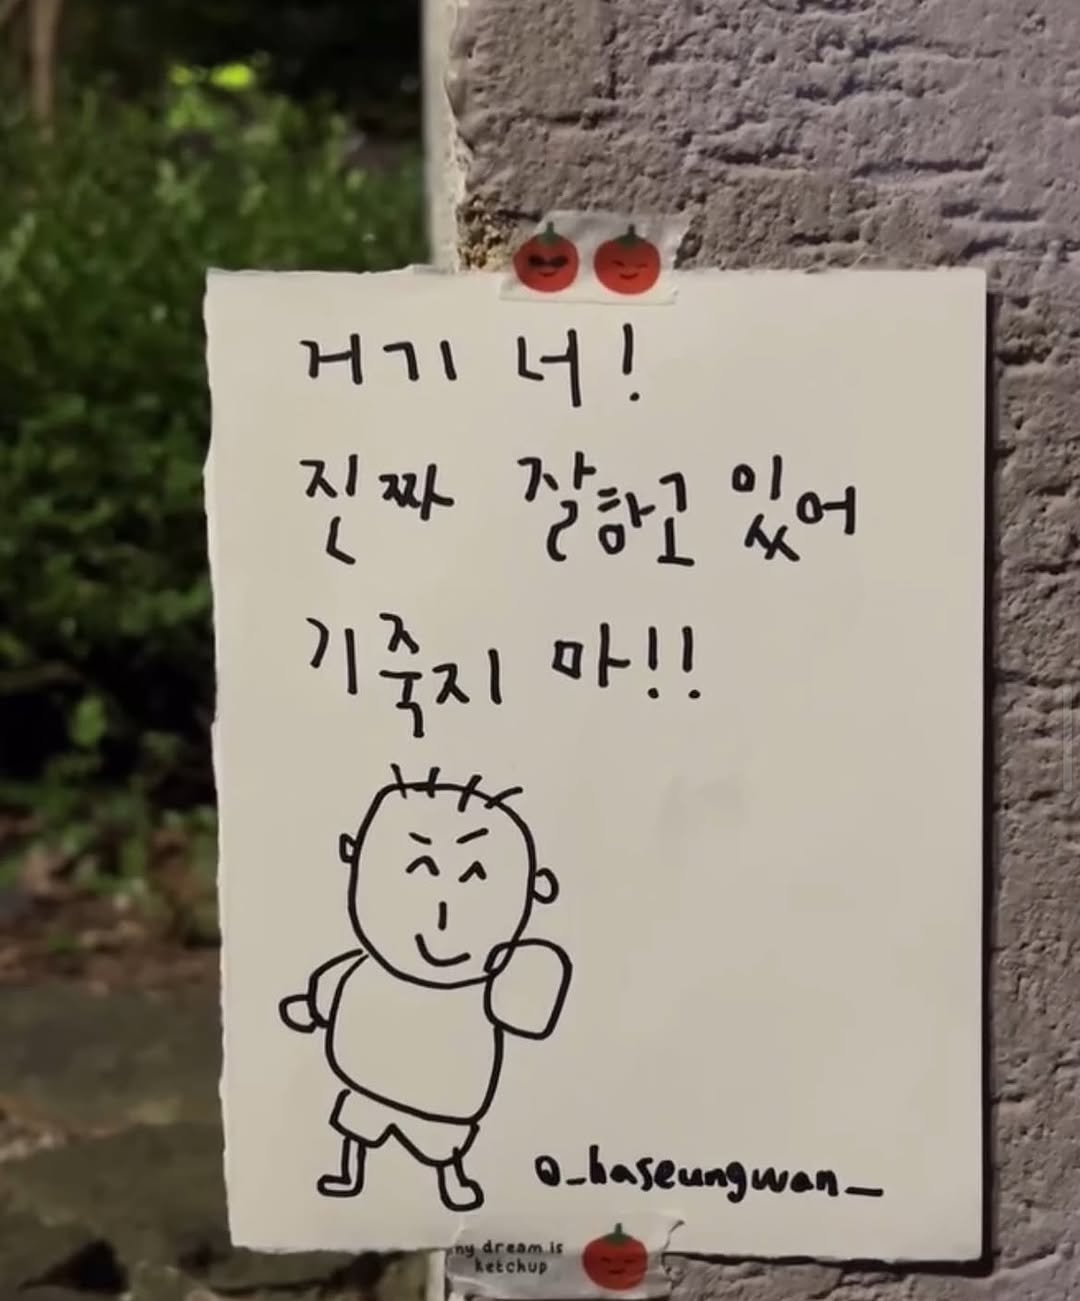 거기 너!
진짜 잘하고 있어
기죽지 마!!
@_haseungwan_
my dream is
ketchup